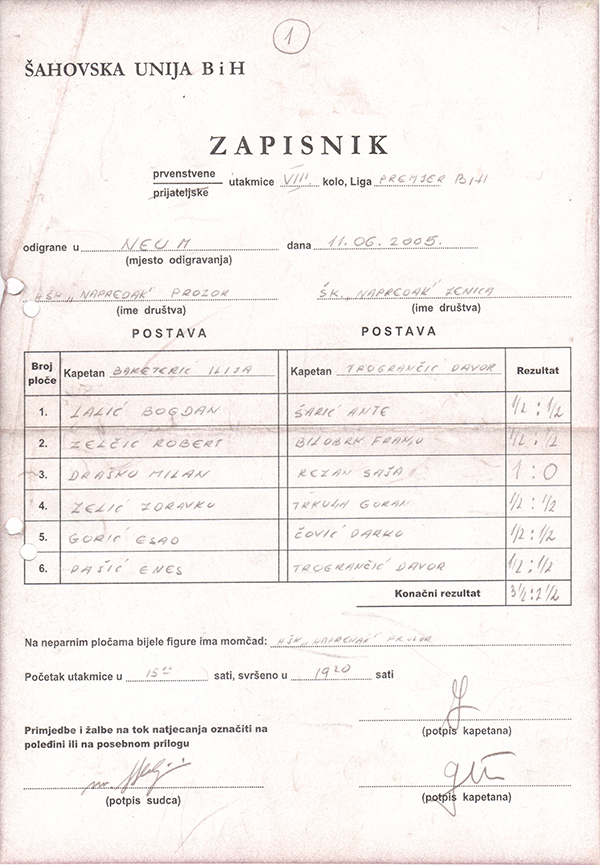 1
ŠAHOVSKA UNIJA BiH
ZAPISNIK
prvenstvene
prijateljske utakmice VIII kolo, Liga PREMJER BIH
odigrane u NEUM dana 11.06.2005.
(mjesto odigravanja)
HŠK „NAPREDAK" PROZOR ŠK. „NAPREDAK" ZENICA
(ime društva) (ime društva)
POSTAVA POSTAVA
Broj ploče Kapetan BAKETERIĆ ILIJA Kapetan TROGRANČIĆ DAVOR Rezultat
1. LALIĆ BOGDAN ŠARIĆ ANTE 1/2 : 1/2
2. ZELČIĆ ROBERT BILOBRK FRANJO 1/2 : 1/2
3. DRAŠKO MILAN REZAN SAŠA 1 : 0
4. ZELIĆ ZDRAVKO TRKULJA GORAN 1/2 : 1/2
5. GORIĆ ESAD ČOVIĆ DARKO 1/2 : 1/2
6. DAŠIĆ ENES TROGRANČIĆ DAVOR 1/2 : 1/2
Konačni rezultat 3 1/2 : 2 1/2
Na neparnim pločama bijele figure ima momčad: HŠK „NAPREDAK" PROZOR
Početak utakmice u 15 00 sati, svršeno u 1920 sati
(potpis kapetana)
Primjedbe i žalbe na tok natjecanja označiti na
poleđini ili na posebnom prilogu
(potpis sudca) (potpis kapetana)